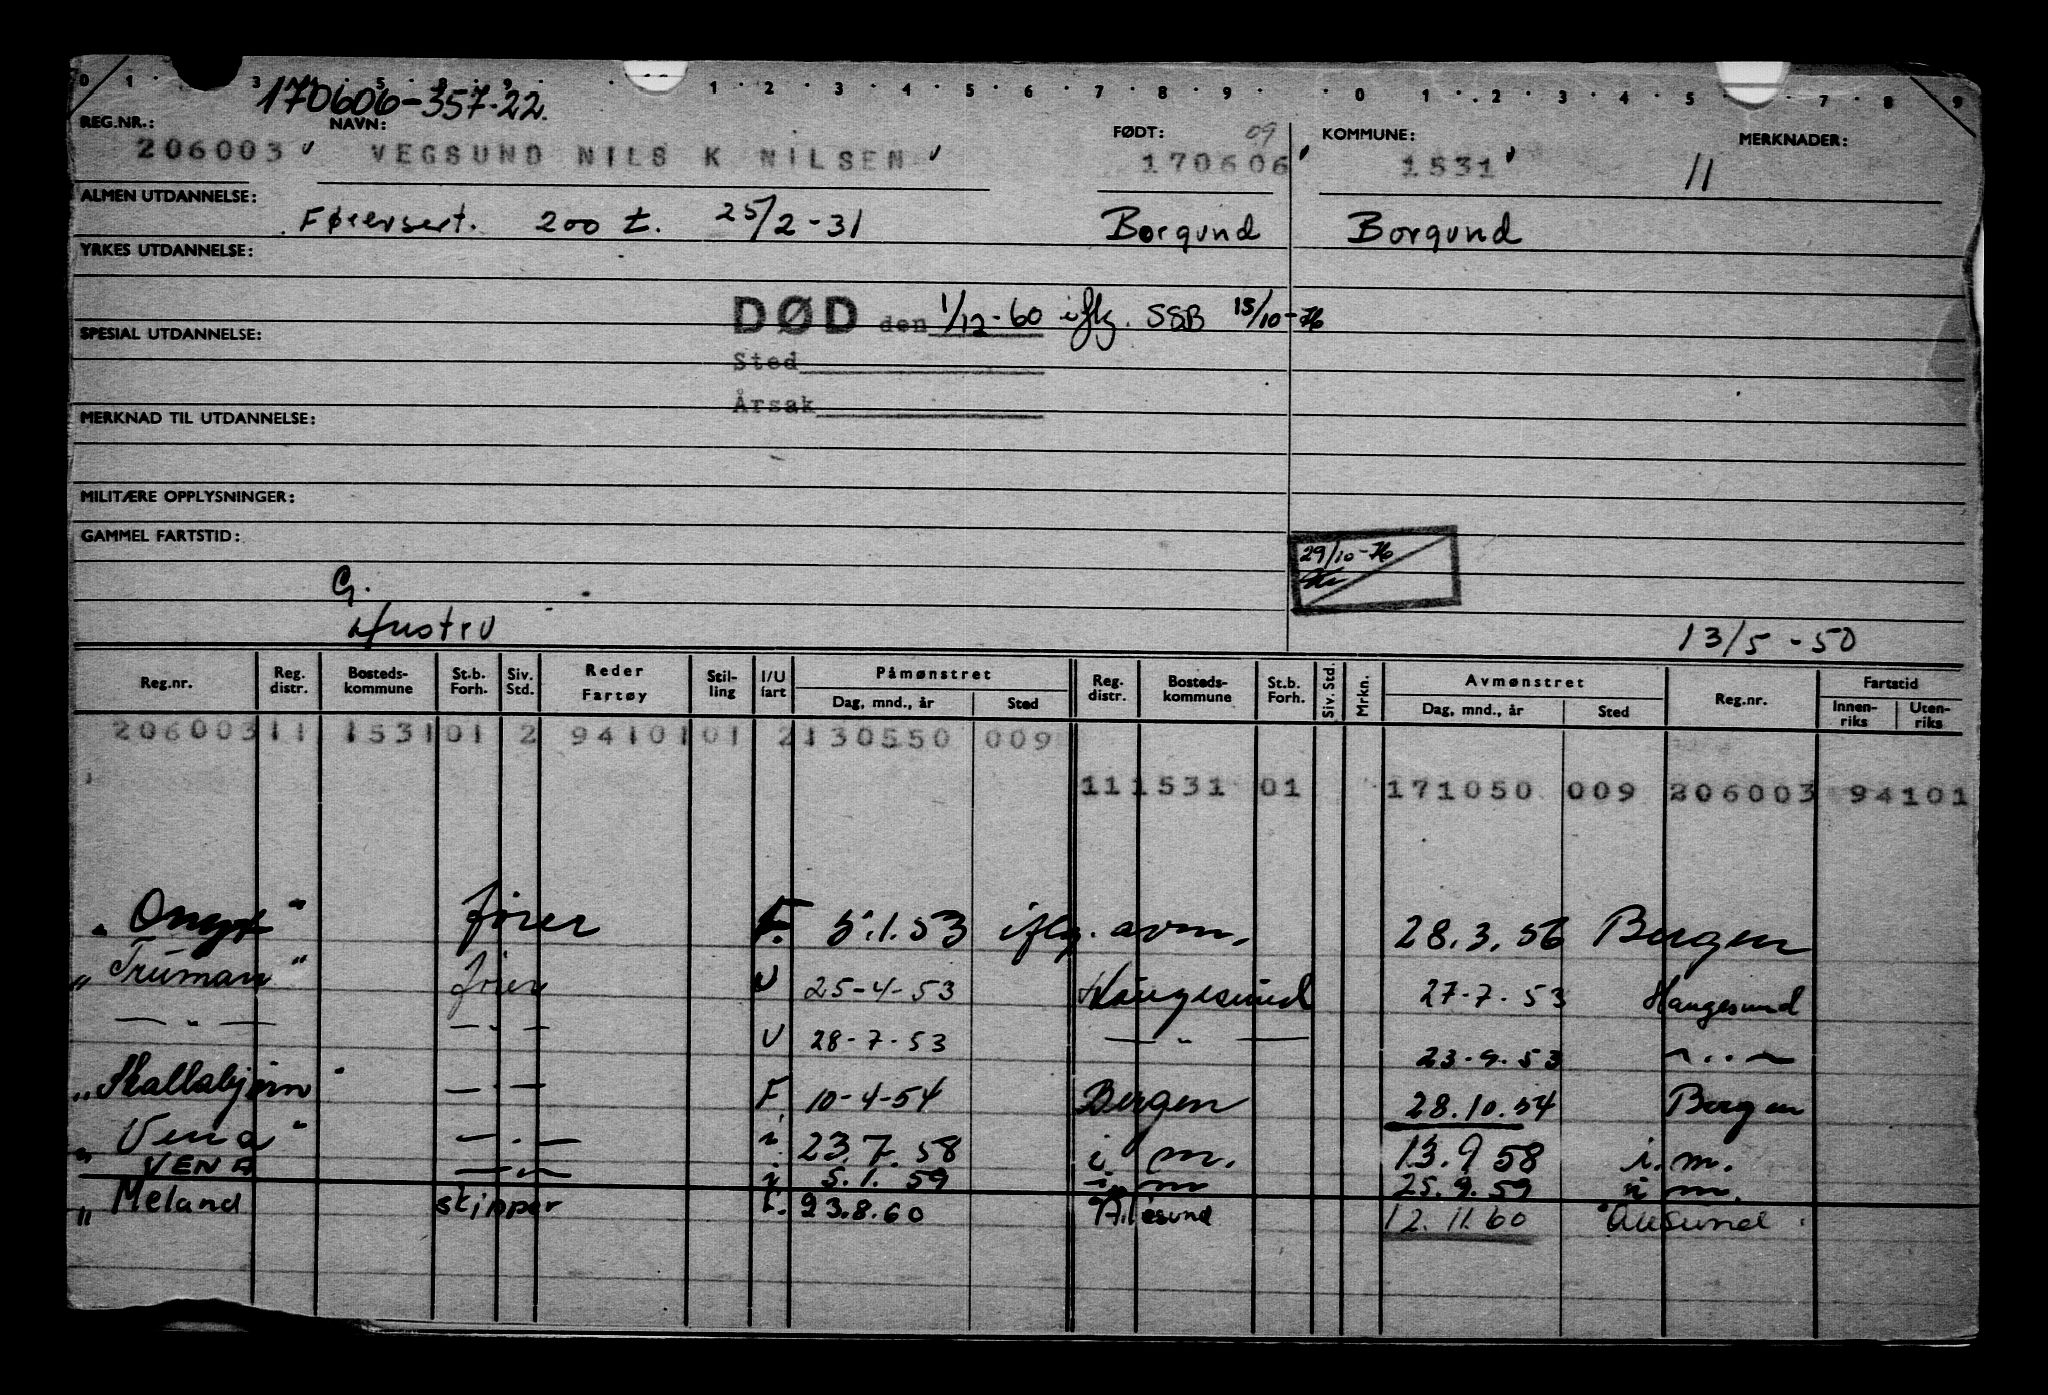 0 1 3 5 8 9 1 2 3 4 5 6 7 8 9 0 1 2 3 4 5 7 8 9
170606-357.22.
REG.NR.: NAVN: FØDT: 09 KOMMUNE: MERKNADER:
206003 VEGSUND NILS K NILSEN 170606 1531 11
ALMEN UTDANNELSE:Førersert. 200 t. 25/2-31 Borgund Borgund
YRKES UTDANNELSE:
DØD den 1/12-60 iflg. SSB 15/10-76
SPESIAL UTDANNELSE:
Sted
Årsak
MERKNAD TIL UTDANNELSE:
MILITÆRE OPPLYSNINGER:
GAMMEL FARTSTID:
29/10-76
G.
Hustru 13/5-50
Reg.nr. Reg. distr. Bosteds-kommune St.b. Forh. Siv. Std. Reder Fartøy Stil-ling I/U fart Påmønstret Dag, mnd., år Sted Reg. distr. Bosteds-kommune St.b. Forh. Siv. Std. Mrkn. Avmønstret Dag, mnd., år Sted Reg.nr. Fartstid Innen-riks Uten-riks
206003 11 1531 01 2 94101 01 2 130550 009
11 1531 01 171050 009 206003 94101
"Onyx" fører F. 5.1.53 iflg. avm. 28.3.56 Bergen
"Truman" fører U 25-4-53 Haugesund 27-7.53 Haugesund
— " — — " — U 28-7-53 — " — 23.9.53 — " —
"Skallabjørn" — " — F. 10-4-54 Bergen 28.10.54 Bergen
"Vena" — " — i 23.7.58 i. m. 13.9 58 i. m.
VENA — " — i 5.1.59 i. m 25.9.59 i m.
"Meland skipper F. 23.8.60 Ålesund 12.11.60 Ålesund